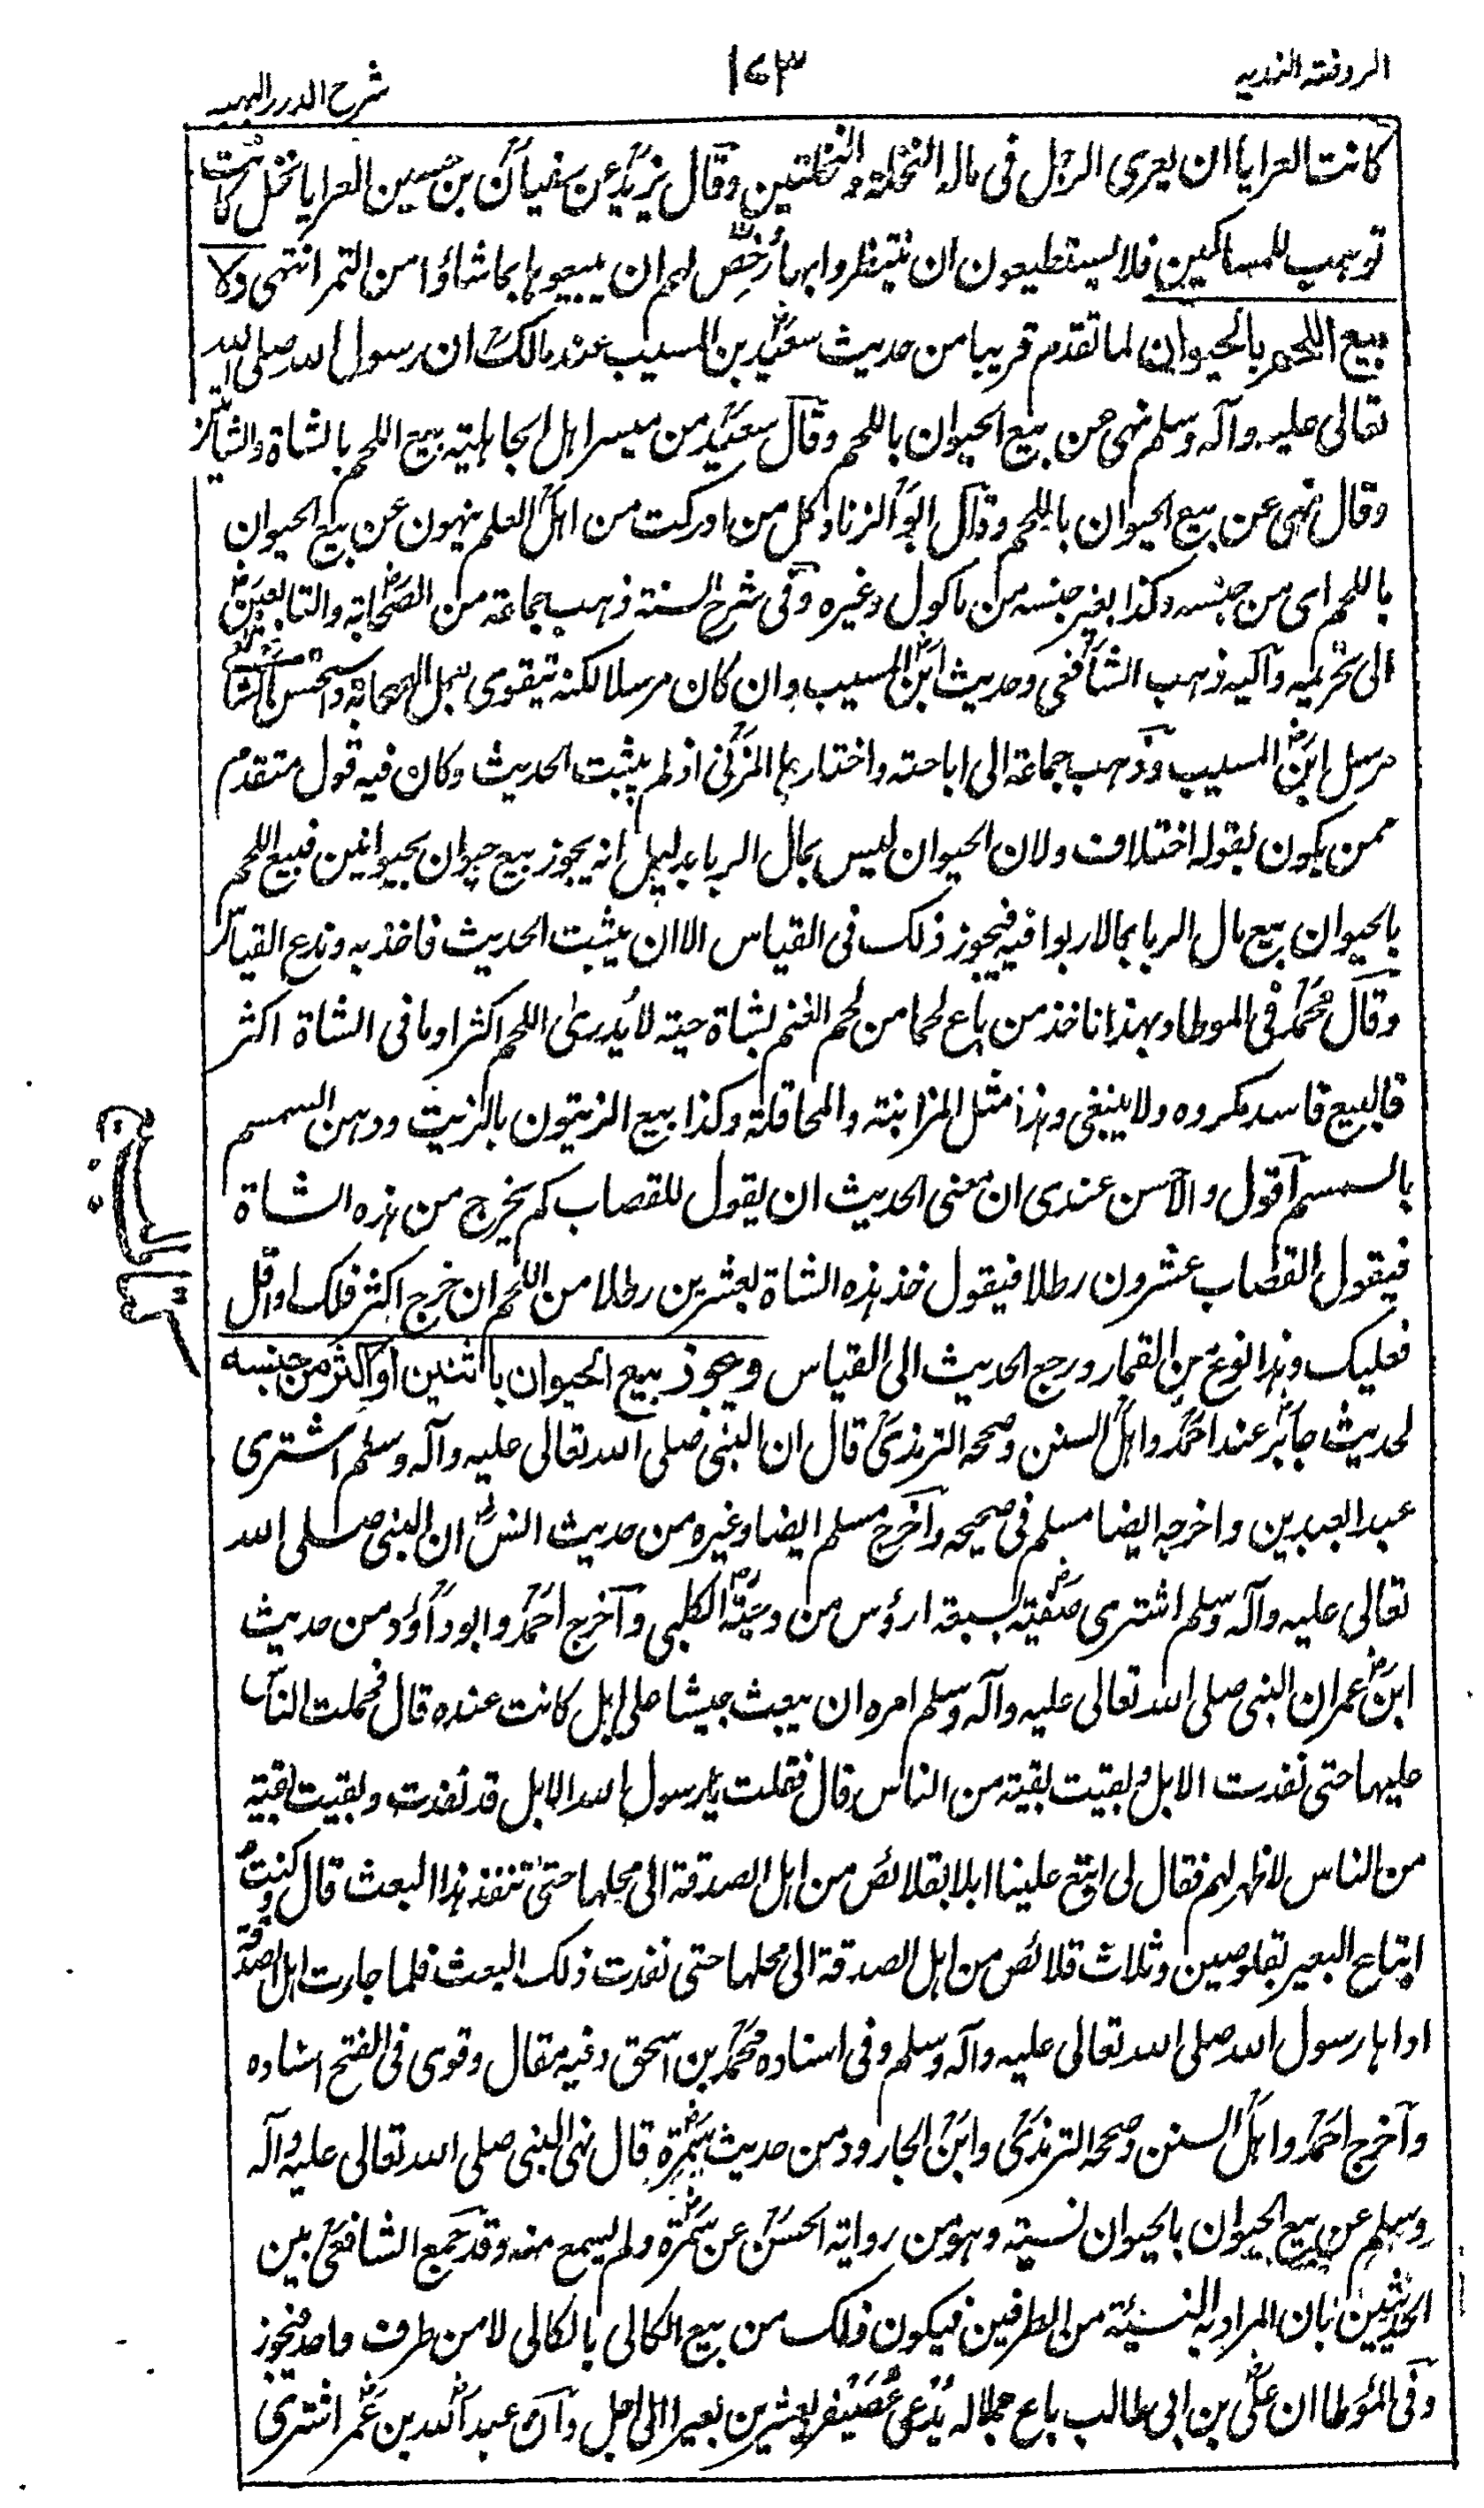 الروضة الندیه
۱۷۳
شرح الدرر البهیه
کانت العرایا ان یعری الرجل فی ماله النخلة والنخلتین وقال یزید عن سفیان بن حسین العرایا نخل کانت
توهب للمساکین فلا یستطیعون ان ینتظروا بها رُخِّص لهم ان یبیعوها بما شاؤا من التمر انتهی ولا
بیع اللحم بالحیوان لما تقدم قریبا من حدیث سعید بن المسیب عند مالک ان رسول الله صلی الله
تعالی علیه وآله وسلم نهی عن بیع الحیوان باللحم وقال سعید من میسر اهل الجاهلیة بیع اللحم بالشاة والشاتین
وقال نهی عن بیع الحیوان باللحم وقال ابو الزناد کل من ادرکت من اهل العلم ینهون عن بیع الحیوان
باللحم ای من جنسه وکذا بغیر جنسه من ماکول وغیره وفی شرح السنة ذهب جماعة من الصحابة والتابعین
الی تحریمه والیه ذهب الشافعی وحدیث ابن المسیب وان کان مرسلا لکنه یتقوی بعمل الصحابة واستحسن الشافعی
مرسل ابن المسیب وذهب جماعة الی اباحته واختارها المزنی اذ لم یثبت الحدیث وکان فیه قول متقدم
ممن یکون بقوله اختلاف ولان الحیوان لیس بمال الربا بدلیل انه یجوز بیع حیوان بحیوانین فبیع اللحم
بالحیوان بیع مال الربا بمالا ربوا فیه فیجوز ذلک فی القیاس الا ان یثبت الحدیث فاخذ به وندع القیاس
وقال محمد فی الموطا وبهذا ناخذ من باع لحما من لحم الغنم بشاة حیة لا یُدری اللحم اکثر او ما فی الشاة اکثر
فالبیع فاسد مکروه ولا ینبغی وهذا مثل المزابنة والمحاقلة وکذا بیع الزیتون بالزیت ودهن السمسم
بالسمسم اقول والاحسن عندی ان معنی الحدیث ان یقول للقصاب کم یخرج من هذه الشاة
فیقول القصاب عشرون رطلا فیقول خذ هذه الشاة بعشرین رطلا من اللحم ان خرج اکثر فلک او اقل
فعلیک وهذا نوع من القمار ورجع الحدیث الی القیاس ویجوز بیع الحیوان باثنین او اکثر من جنسه
لحدیث جابر عند احمد واهل السنن وصححه الترمذی قال ان النبی صلی الله تعالی علیه وآله وسلم اشتری
عبدا بعبدین واخرجه ایضا مسلم فی صحیحه واخرج مسلم ایضا وغیره من حدیث انس ان النبی صلی الله
تعالی علیه وآله وسلم اشتری صفیة بسبعة ارؤس من دحیة الکلبی واخرج احمد وابو داؤد من حدیث
ابن عمر ان النبی صلی الله تعالی علیه وآله وسلم امره ان یبعث جیشا علی ابل کانت عنده قال فحملت الناس
علیها حتی نفدت الابل وبقیت بقیة من الناس قال فقلت یا رسول الله الابل قد نفدت وبقیت بقیة
من الناس لا ظهر لهم فقال لی ابتع علینا ابلا بقلائص من ابل الصدقة الی محلها حتی تنفذ هذا البعث قال وکنت
ابتاع البعیر بقلوصین وثلاث قلائص من ابل الصدقة الی محلها حتی نفذت ذلک البعث فلما جاءت ابل الصدقة
اداها رسول الله صلی الله تعالی علیه وآله وسلم وفی اسناده محمد بن اسحق وفیه مقال وقوی فی الفتح اسناده
واخرج احمد واهل السنن وصححه الترمذی وابن الجارود من حدیث سمرة قال نهی النبی صلی الله تعالی علیه وآله
وسلم عن بیع الحیوان بالحیوان نسیة وهو من روایة الحسن عن سمرة ولم یسمع منه وقد جمع الشافعی بین
الحدیثین بان المراد به النسیئة من الطرفین فیکون ذلک من بیع الکالی بالکالی لا من طرف واحد فیجوز
وفی الموطا ان علی بن ابی طالب باع جملا له یُدعی عُصَیفیر بعشرین بعیرا الی اجل وان عبد الله بن عمر اشتری